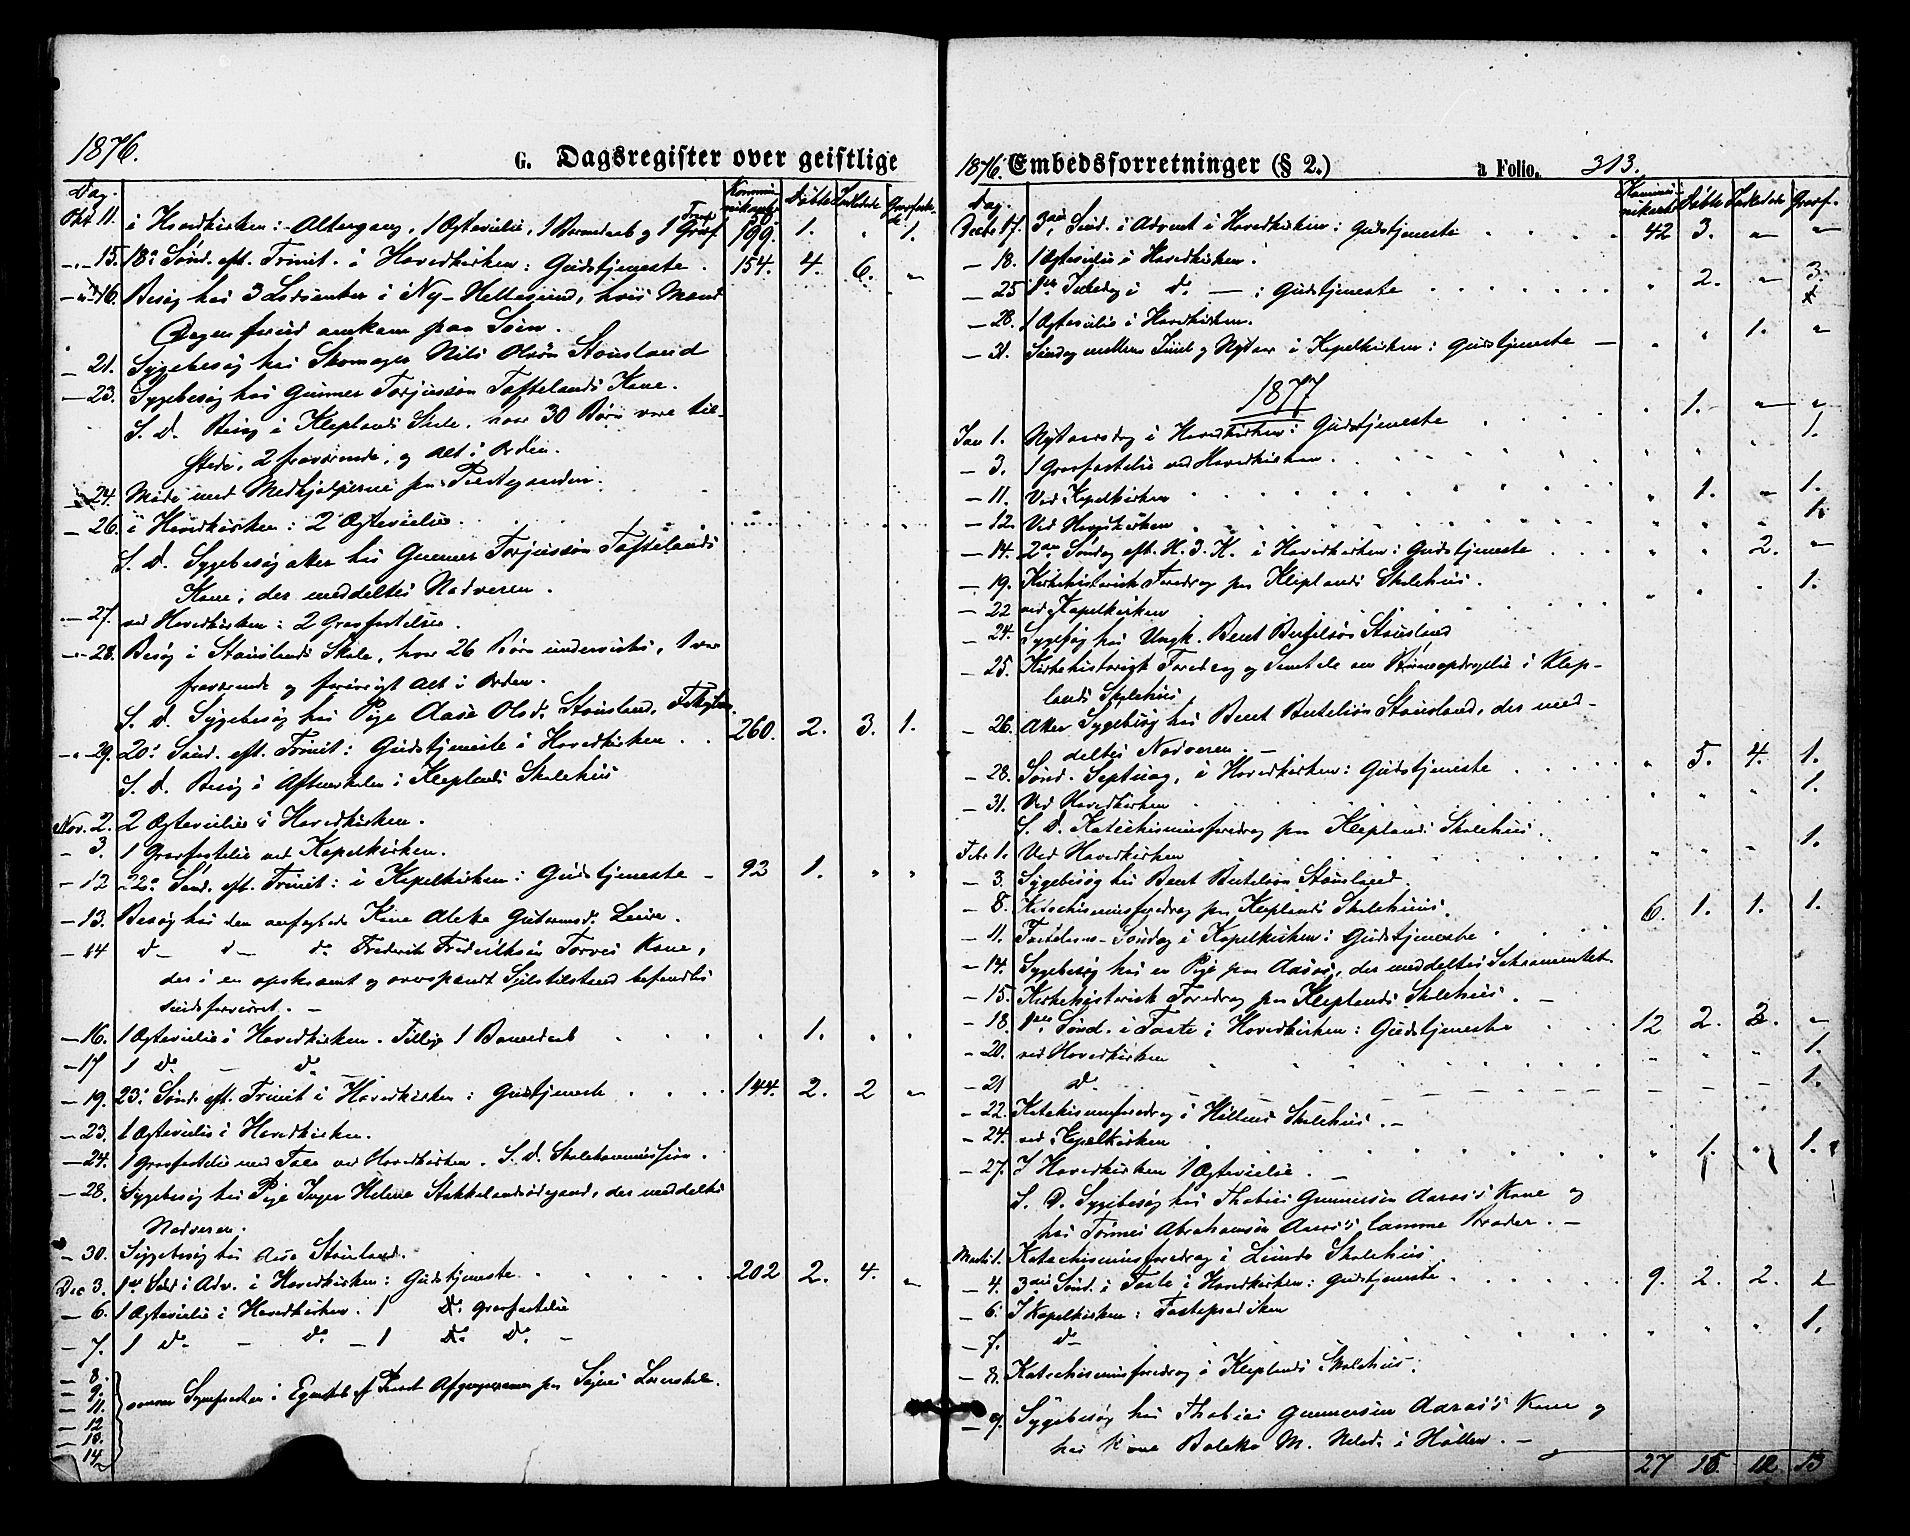 1876.
G. Dagsregister over geistlige
Dag. Kommunikanter Døbte Introd. Graffæst.
Okt 11. i Hovedkirken: Altergang, 1 Ægtevielse, 1 Barnedaab og 1 Graf 199. 1. " 1.
- 15. 18de Sønd. eft. Trinit. i Hovedkirken: Gudstjeneste. 154. 4. 6. "
- 16. Besøg hos 3 i Ny-Hellesund, hvis Mænd
Dagen forud omkom paa Søen.
- 21. Sygebesøg hos Skomager Nils Olsøn Stausland
- 23. Sygebesøg hos Gunner Torjussøn Toftelands Kone.
S. D. Besøg i Kleplands Skole, hvor 30 Børn vare til-
stede, 2 fraværende, og Alt i Orden.
- 24. Møde med Medhjælperne paa Prestegaarden.
- 26. i Hovedkirken: 2 Ægtevielser.
S. D. Sygebesøg atter hos Gunner Torjussøn Toftelands
Kone, der meddeltes Nadveren.
- 27. ved Hovedkirken: 2 Gravfæstelser.
- 28. Besøg i Stauslands Skole, hvor 26 Børn undervistes, 1 var
fraværende og forøvrigt Alt i Orden.
S. D. Sygebesøg hos Pige Aase Olsd. Stausland,
- 29. 20de Sønd. eft. Trinit: Gudstjeneste i Hovedkirken 260. 2. 3. 1.
S. D. Besøg i Aftenskolen i Kleplands Skolehus
Nov. 2. 2 Ægtevielser i Hovedkirken.
- 3. 1 Gravfæstelse ved Kapelkirken.
- 12 22de Sønd. eft. Trinit: i Kapelkirken: Gudstjeneste - 92 1. " "
- 13. Besøg hos den anfægtede Kone
- 14 d- d- do Frederik Fredriksøn Torves Kone,
der i en opskræmt og overspændt Sjelstilstand befandtes
sindsforvirret. -
- 16. 1 Ægtevielse i Hovedkirken. Tillige 1 Barnedaab 1. " "
- 17 1 do - do
- 19. 23de Sønd. eft. Trinit i Hovedkirken: Gudstjeneste 144. 2. 2 "
- 23. 1 Ægtevielse i Hovedkirken.
- 24. 1 Gravfæstelse med Tale ved Hovedkirken. S. D. Skolekommission.
- 28. Sygebesøg hos Pige Inger Helene Stokkelandsødegaard, der meddeltes
Nadveren.
- 30. Sygebesøg hos Aase Stausland.
Dec 3. 1ste Sønd i Adv. i Hovedkirken: Gudstjeneste 202 2. 4. "
- 6. 1 Ægtevielse i Hovedkirken. 1 D. Gravfæstelse
- 7. 1 do - do - 1 D. D. -
- 8.
- 9.
- 11. paa Søgnes
- 12
- 13.
- 14
1876. Embedsforretninger (§ 2.) a Folio. 313.
Dag. Kommunikant. Døbte Introd. Graf.
Decbr 17. 3die Sønd. i Advent i Hovedkirken: Gudstjeneste 42 3. " "
- 18. 1 Ægtevielse i Hovedkirken.
- 25 1ste Juledag i do - : Gudstjeneste " 2. " 3.
- 28. 1 Ægtevielse i Hovedkirken.
- 31. Søndag mellem Juul og Nytaar i Kapelkirken: Gudstjeneste - " " 1. "
1877
Jan 1. Nytaarsdag i Hovedkirken: Gudstjeneste " 1. " "
- 3. 1 Gravfæstelse ved Hovedkirken 1.
- 11. Ved Kapelkirken " 1. " 1.
- 12. Ved Hovedkirken " " " 1.
- 14. 2den Søndag eft. H. 3. K. i Hovedkirken: Gudstjeneste " " 2. "
- 19. Kirkehistorisk Foredrag paa Kleplands Skolehus.
- 22 ved Kapelkirken " " " 1.
- 24. Sygebesøg hos Ungk. Bent Bertelsøn Stausland
- 25. Kirkehistorisk Foredrag og Samtale om Børneopdragelse i Klep-
lands Skolehus
- 26. Atter Sygebesøg hos Bent Bertelsøn Stausland, der med-
deltes Nadveren. -
- 28. Sønd. Septuag. i Hovedkirken: Gudstjeneste " 5. 4. 1.
- 31. Ved Hovedkirken " " " 1.
S. D. Katechismusforedrag paa Kleplands Skolehus.
Febr 1. Ved Hovedkirken " " " 1.
- 3. Sygebesøg hos Bent Bertelsøn Stausland
- 8. Katechismusforedrag paa Kleplands Skolehus.
- 11. Fastelavns-Søndag i Kapelkirken: Gudstjeneste 6. 1. 1. 1.
- 14. Sygebesøg hos en Pige paa Aaros, der meddeltes Sakramentet
- 15. Kirkehistorisk Foredrag paa Kleplands Skolehus. -
- 18. 1ste Sønd. i Faste i Hovedkirken: Gudstjeneste 12 2. 3. "
- 20. ved Hovedkirken " " " 1.
- 21 do - - - 1.
- 22. Katechismusforedrag i Høllens Skolehus. -
- 24. ved Kapelkirken " 1. " 1.
- 27. I Hovedkirken 1 Ægtevielse. -
S. D. Sygebesøg hos Thobias Gunnersøn Aaros's Kone og
hos Tønnes Abrahamsøn Aaros's lamme Broder. -
Marts 1. Katechismusforedrag i Lunde Skolehus.
- 4. 3die Sønd. i Faste i Hovedkirken: Gudstjeneste 9. 2. 2. 2
- 6. I Kapelkirken: Fasteprædiken
- 7. do " " " 1.
- 8. Katechismusforedrag i Kleplands Skolehus.
- 9. Sygebesøg hos Thobias Gunnersøn Aaros's Kone og
hos Kone Boleta M. Nilsd. i Høllen. -
27 15. 12 13